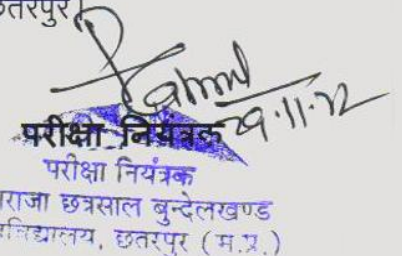 छतरपुर।
29.11.12
परीक्षा नियंत्रक
परीक्षा नियंत्रक
राजा छत्रसाल बुन्देलखण्ड
विद्यालय, छतरपुर (म.प्र.)